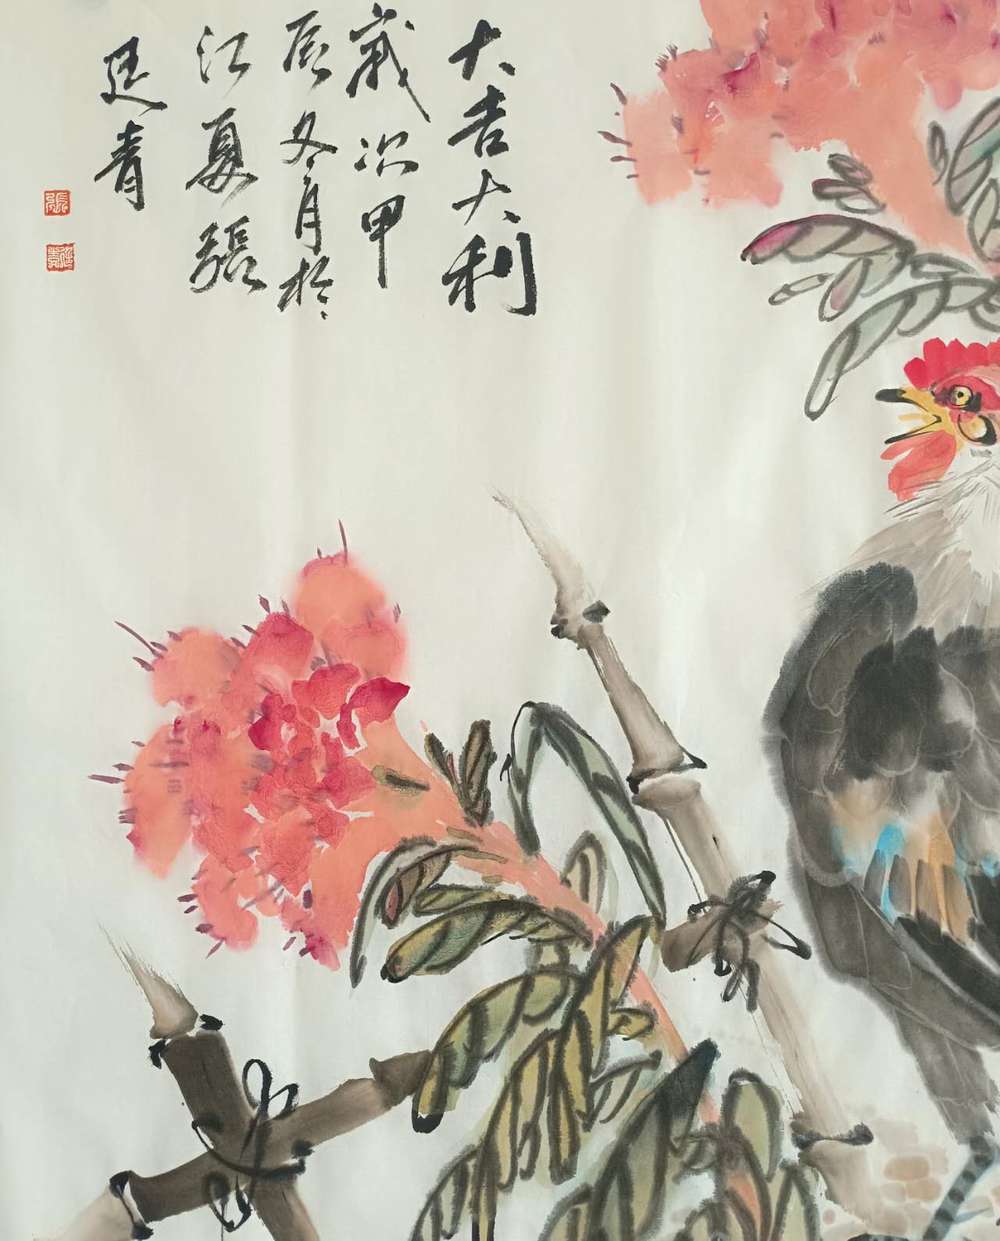 大吉大利
歲次甲
辰冬月於
江夏張
廷青
張
廷青